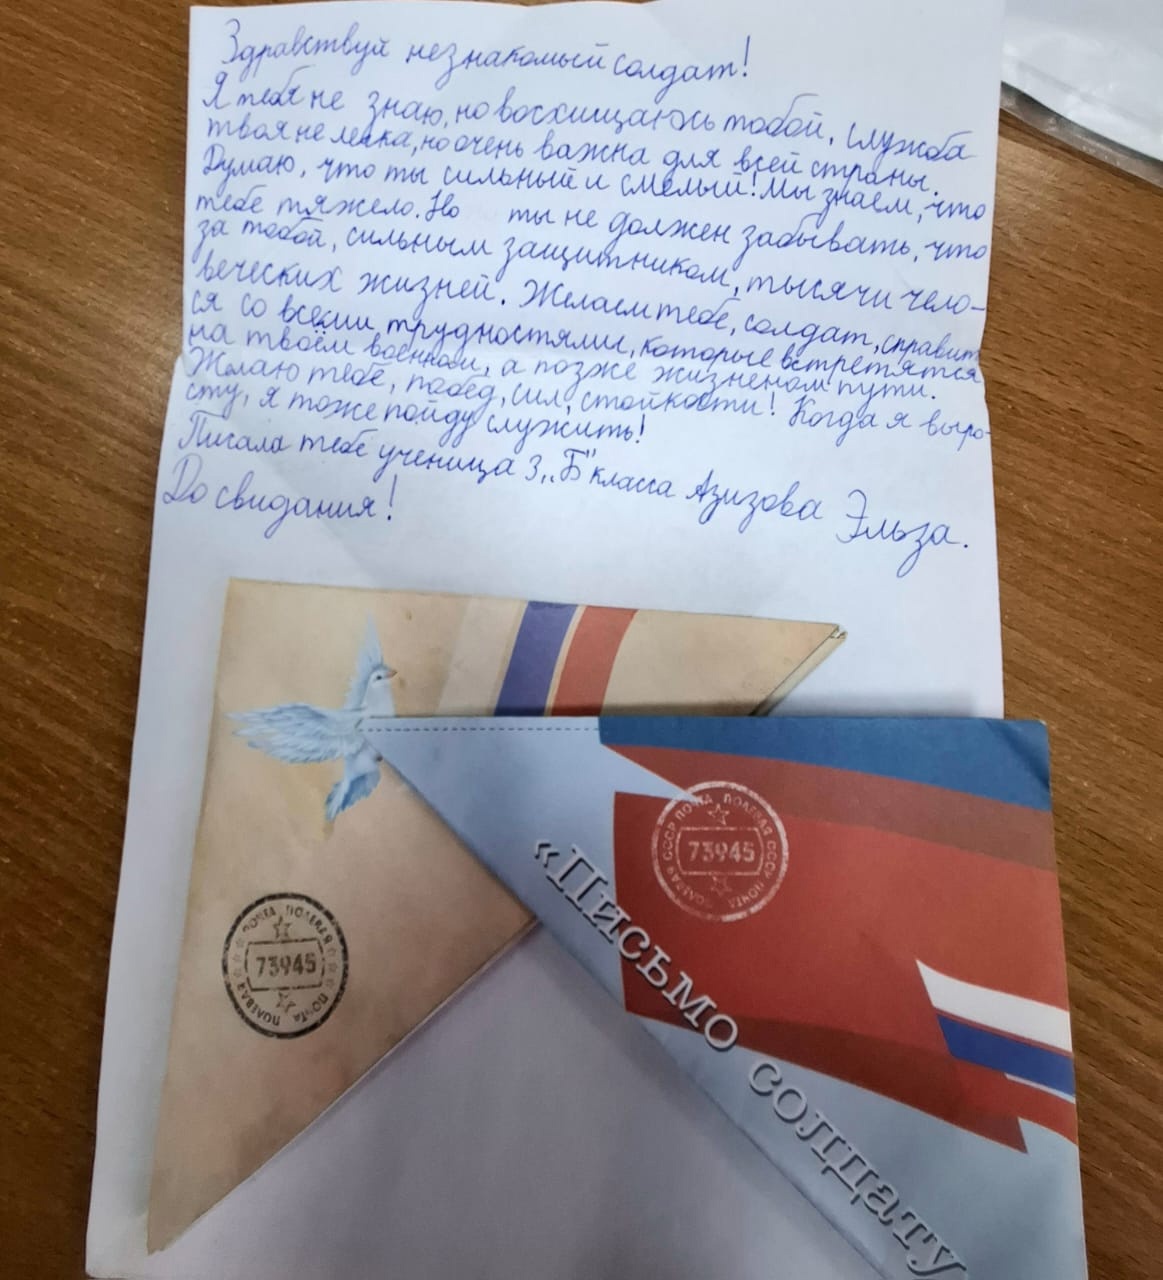 Здравствуй незнакомый солдат!
Я тебя не знаю, но восхищаюсь тобой, служба
твоя не легка, но очень важна для всей страны.
Думаю, что ты сильный и смелый! Мы знаем, что
тебе тяжело. Но ты не должен забывать, что
за тобой, сильным защитником, тысячи чело-
веческих жизней. Желаем тебе, солдат, справит
ся со всеми трудностями, которые встретятся
на твоём военном, а позже жизненом пути.
Желаю тебе, побед, сил, стойкости! Когда я выро-
сту, я тоже пойду служить!
Писала тебе ученица 3 „Б" класса Азизова Эльза.
До свидания!
ПОЧТА ПОЛЕВАЯ СССР ПОЧТА ПОЛЕВАЯ СССР
73945
«Письмо солдату
ПОЧТА ПОЛЕВАЯ ПОЧТА ПОЛЕВАЯ
73945